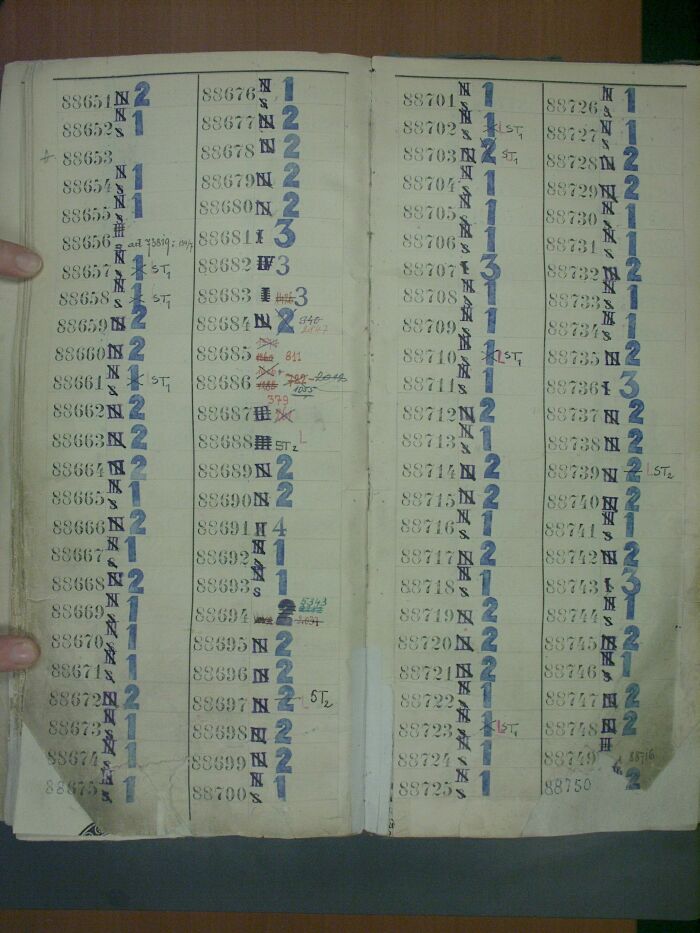 88651 N 2
88652 N s 1
88653
88654 N s 1
88655 N s 1
88656 s ad 75819;
88657 N s 1 ST1
88658 N s 1 ST1
88659 N 2
88660 N 2
88661 N s 1 ST1
88662 N 2
88663 N 2
88664 N 2
88665 N s 1
88666 N 2
88667 N s 1
88668 N 2
88669 N s 1
88670 N s 1
88671 N s 1
88672 N 2
88673 N s 1
88674 N s 1
88675 N s 1
88676 N s 1
88677 N 2
88678 N 2
88679 N 2
88680 N 2
88681 I 3
88682 IV 3
88683 I 3
88684 N 2
88685 811
88686
88687 III 379
88688 III ST2 L
88689 N 2
88690 N 2
88691 II 4
88692 N s 1
88693 N s 1
88694 2 5343
88695 N 2
88696 N 2
88697 N 2 L ST2
88698 N 2
88699 N 2
88700 N s 1
88701 N s 1
88702 N s 1 L ST1
88703 N 2 ST1
88704 N s 1
88705 N s 1
88706 N s 1
88707 I 3
88708 N s 1
88709 N s 1
88710 N s 1 L ST1
88711 N s 1
88712 N 2
88713 N s 1
88714 N 2
88715 N 2
88716 N s 1
88717 N 2
88718 N s 1
88719 N 2
88720 N 2
88721 N 2
88722 N s 1
88723 N s 1 L ST1
88724 N s 1
88725 N s 1
88726 N s 1
88727 N s 1
88728 N 2
88729 N 2
88730 N s 1
88731 N s 1
88732 N 2
88733 N s 1
88734 N s 1
88735 N 2
88736 I 3
88737 N 2
88738 N 2
88739 N 2 L ST2
88740 N 2
88741 N s 1
88742 N 2
88743 I 3
88744 N s 1
88745 N 2
88746 N s 1
88747 N 2
88748 N 2
88749 III 88716
88750 2